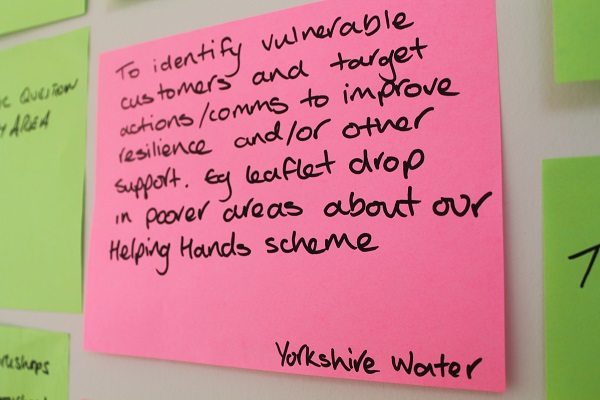 To identify vulnerable
customers and target
actions/comms to improve
resilience and/or other
support. Eg leaflet drop
in poorer areas about our
Helping Hands scheme
Yorkshire Water
QUESTION
AREA